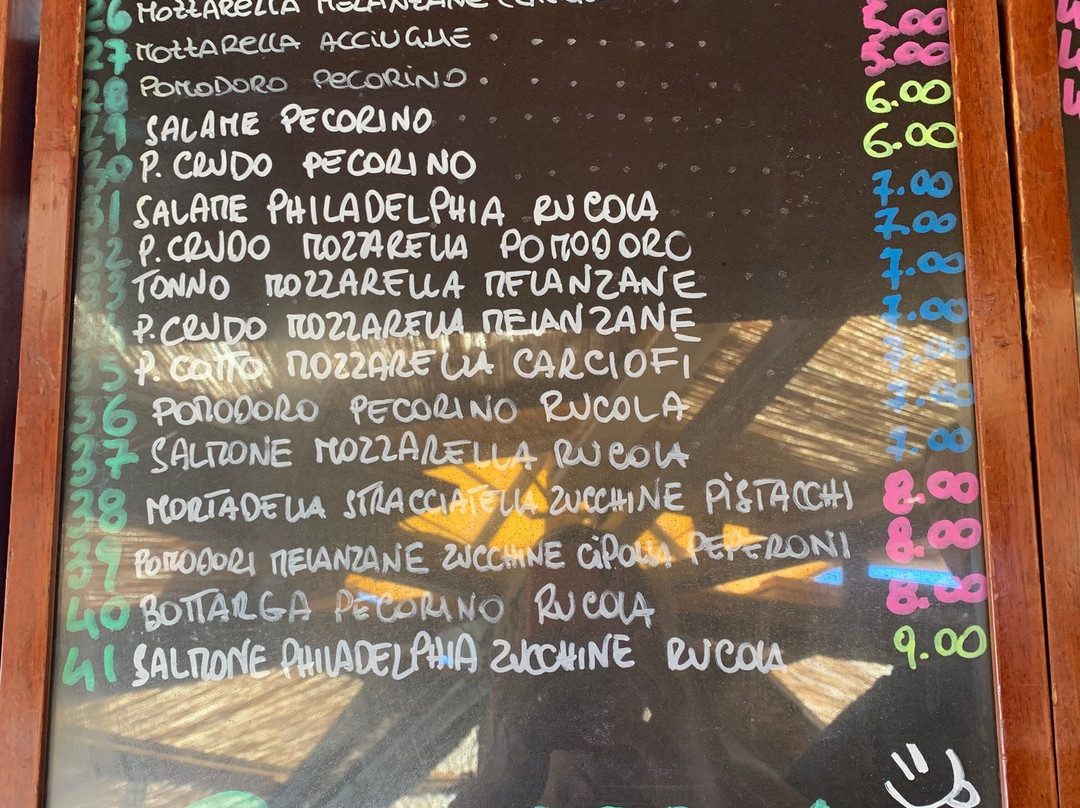 26 MOZZARELLA MELANZANE
27 MOZZARELLA ACCIUGHE 5.00
28 POMODORO PECORINO 5.00
29 SALAME PECORINO 6.00
30 P. CRUDO PECORINO 6.00
31 SALAME PHILADELPHIA RUCOLA 7.00
32 P. CRUDO MOZZARELLA POMODORO 7.00
33 TONNO MOZZARELLA MELANZANE 7.00
P. CRUDO MOZZARELLA MELANZANE 7.00
35 P. COTTO MOZZARELLA CARCIOFI 7.00
36 POMODORO PECORINO RUCOLA 7.00
37 SALMONE MOZZARELLA RUCOLA 7.00
38 MORTADELLA STRACCIATELLA ZUCCHINE PISTACCHI 8.00
39 POMODORI MELANZANE ZUCCHINE CIPOLLA PEPERONI 8.00
40 BOTTARGA PECORINO RUCOLA 8.00
41 SALMONE PHILADELPHIA ZUCCHINE RUCOLA 9.00